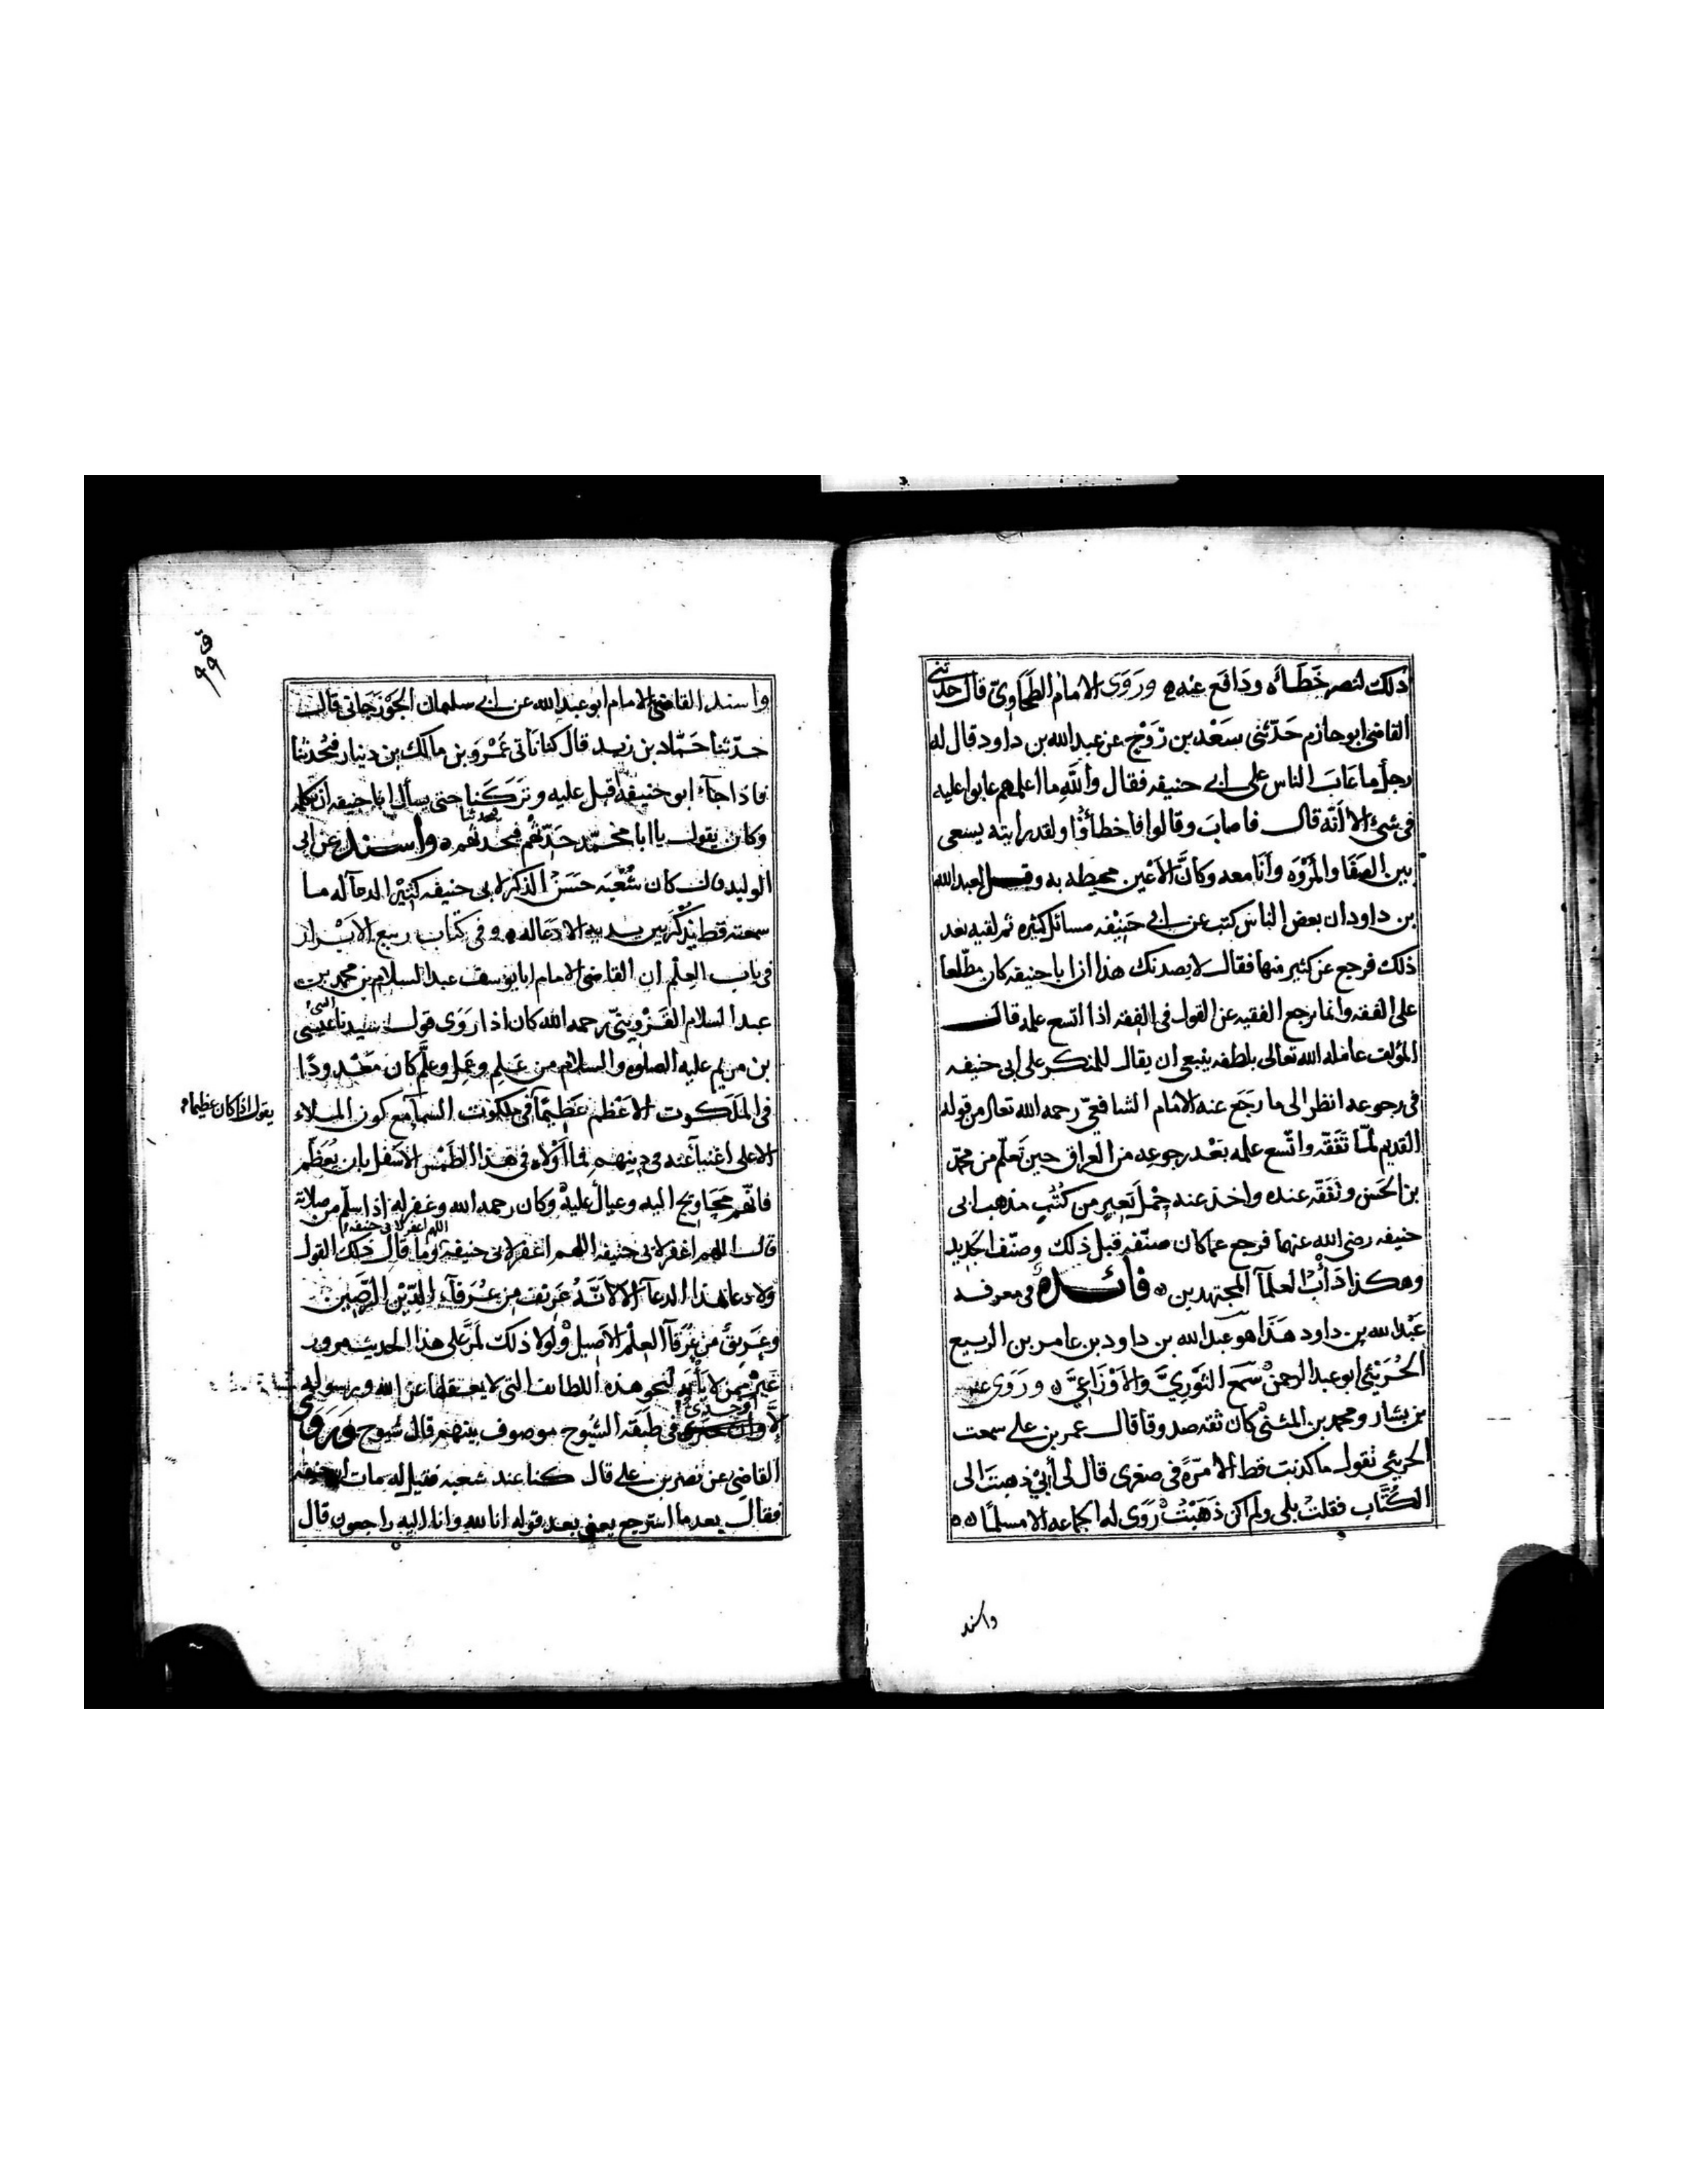 ذلك لنصر خَطَأه ودَافَع عنه ٥ ورَوَى الامام الطحَاوِىّ قال حدثنى
القاضى ابو حازم حَدّثنى سَعْد بن رَوْح عن عبد الله بن داود قال له
رجل ما عَابَ الناس على ابى حنيفه فقال والله ما اعلمهم عابوا عليه
فى شئ الا انّه قال فاصابَ وقالوا فاخطأوُا ولقد رايته يسعى
بين الصَفَا والمرْوَه وأنا معه وكانَّ الاعْين محيطه به وقيل لعبد الله
بن داود ان بعض الناس كتب عن ابى حَنِيْفه مسائل كثيره ثم لقيه بعد
ذلك فرجع عن كثير منها فقال لا يصدنك هذا ان ابا حنيفه كان مطّلعا
على الفقه وانما يرجع الفقيه عن القول فى الفقه اذا اتسع علمه قال
المؤلف عامله الله تعالى بلطفه ينبغى ان يقال للمنكر على ابى حنيفه
فى رجوعه انظر الى ما رَجَع عنه الامام الشافعىّ رحمه الله تعالى من قوله
القديم لمّا تَفَقّه واتّسع علمه بَعْد رجوعه من العراق حين تَعلّم من محمّد
بن الحَسَن وتَفَقّه عنده واخذ عنه حِمْلَ بَعِيرٍ من كُتُبِ مذهب ابى
حنيفه رضى الله عنهما فرجع عما كان صنّفه قبل ذلك وصنّف الجَدِيد
وهكذا دَأبُ العلمآ المجتهدين ٥ فائدة فى معرفه
عَبْد الله بن داود هَذَا هو عبد الله بن داود بن عامر بن الربيع
الخُرَيْبِي ابو عبد الرحمن سَمِعَ الثَوْرِيَّ والاَوْزَاعِيَّ ٥ ورَوَى عنه
بن بشار ومحمد بن المثنى كان ثقه صدوقا قال عمر بن على سمعت
الخريبي يقول ما كذبت قط الا مرّةً فى صغرى قال لى أبِيْ ذهبتَ الى
الكُتَّاب فقلت بلى ولم اكن ذَهَبْتُ رَوَى له الجماعه الا مسلمًا ٥٥
واسند
ق
٩٩
واسند القاضى الامام ابو عبد الله عن ابى سلمان الجَوْزَجَانى قال
حدّثنا حَمّاد بن زيد قال كنا نَاتى عَمْرو بن مالك بن دينار فيحُدثنا
فاذا جآء ابو حنيفه اقبل عليه وتَرَكَنا حتى يسأل ابا حنيفه ان يكلمه
وكان يقول يا ابا محمّد حَدّثهُم فيحدثهم ٥ واسند عن ابى
يحدثنا
الوليد قال كان شُعْبَه حَسَن الذكر لابى حنيفه كثيْر الدعآ له ما
سمعته قط يذكر بين يديه الا دعا له ٥ وفى كتاب ربيع الابْرار
فى باب العِلْم ان القاضى الامام ابا يوسف عبد السلام بن محمد بن
عبد السلام القَزْوِينىّ رحمه الله كان اذا رَوَى قول سيدنا عيسى
النبى
بن مريم عليه الصلوه والسلام من عَلِم وعَمِل وعلّم كان مَعْدودًا
فى المَلَكُوت الاعْظم عَظِيمًا فى ملكوت السمآ مع كون الملاء
يقول اذا كان عظيما
الاعلى اغنيآ عنه فى دينهم فما أوْلاه فى هذا الطَمْسِ الاسفل بان يُعَظَّم
فانّهم مَحَاويج اليه وعيالٌ عليْه وكان رحمه الله وغفر له اذا سلّم من صلاته
قال اللهم اغفر لابى حنيفه اللهم اغفر لابى حنيفه وما قال ذلك القول
اللهم اغفر لابى حنيفه
ولا دعا هذا الدعآ الا لانّه عَرِيْف من عُرَفآء الدّيْن الرَّصِين
وعَرِيقٌ من عُرَقآ العِلْم الاَصِيل ولولا ذلك لمَرَّ على هذا الحديث مرور
غيره ممن لا يأبَه لنحو هذه اللطائف التى لا يعقلها عن الله ورسوله
فى طبَقه الشيُوح موصوف بينهم قال شيوح ورَوَى
القاضى عن نصر بن على قال كنا عند شعبه فقيل له مات ابو حنيفه
فقال بعد ما استرجع يعنى بعد قوله انا لله وانا اليه راجعون قال